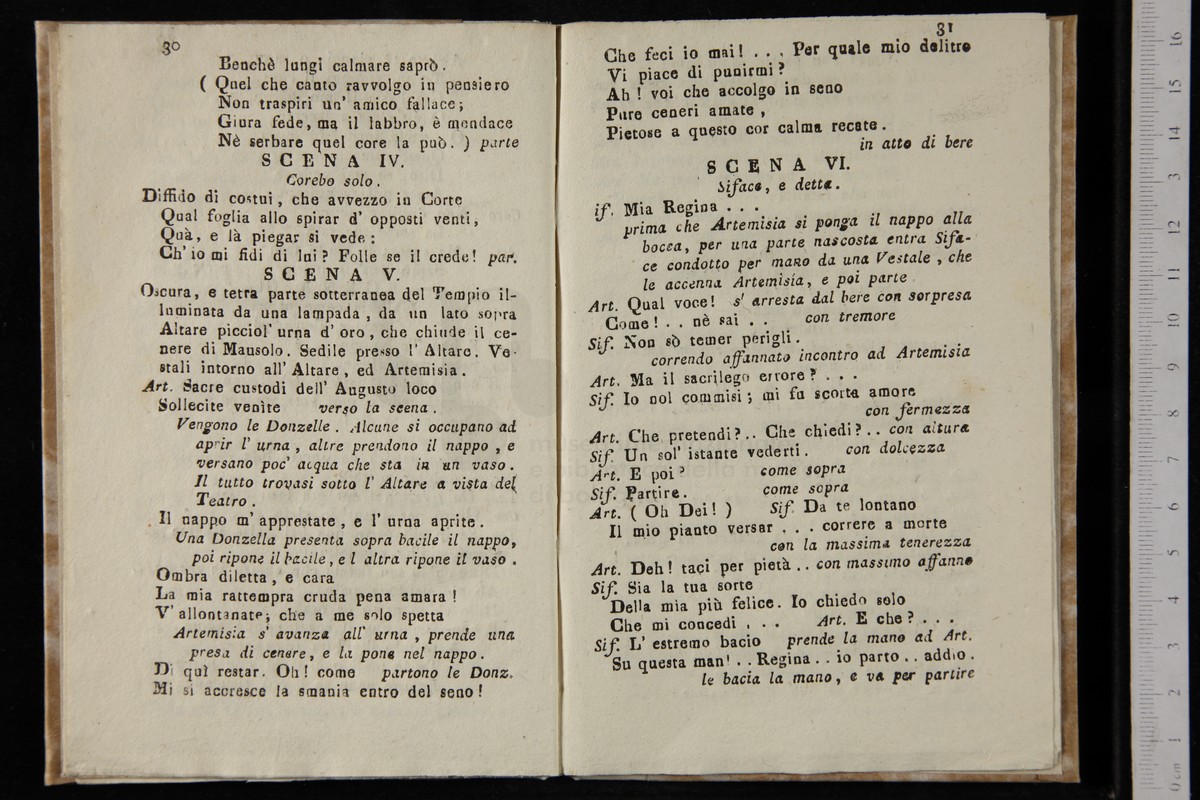 30
Benchè lungi calmare saprò.
( Quel che canto ravvolgo in pensiero
Non traspiri un' amico fallace;
Giura fede, ma il labbro, è mendace
Nè serbare quel core la può. ) parte
SCENA IV.
Corebo solo.
Diffido di costui, che avvezzo in Corte
Qual foglia allo spirar d' opposti venti,
Quà, e là piegar si vede:
Ch' io mi fidi di lui? Folle se il crede! par.
SCENA V.
Oscura, e tetra parte sotterranea del Tempio il-
luminata da una lampada, da un lato sopra
Altare picciol' urna d' oro, che chiude il ce-
nere di Mausolo. Sedile presso l' Altare. Ve-
stali intorno all' Altare, ed Artemisia.
Art. Sacre custodi dell' Augusto loco
Sollecite venite verso la scena.
Vengono le Donzelle. Alcune si occupano ad
aprir l' urna, altre prendono il nappo, e
versano poc' acqua che sta in un vaso.
Il tutto trovasi sotto l' Altare a vista del
Teatro.
Il nappo m' apprestate, e l' urna aprite.
Una Donzella presenta sopra bacile il nappo,
poi ripone il bacile, e l altra ripone il vaso.
Ombra diletta, e cara
La mia rattempra cruda pena amara!
V' allontanate; che a me solo spetta
Artemisia s' avanza all' urna, prende una
presa di cenere, e la pone nel nappo.
Di quì restar. Oh! come partono le Donz.
Mi si accresce la smania entro del seno!
31
Che feci io mai! . . . Per quale mio delitto
Vi piace di punirmi?
Ah! voi che accolgo in seno
Pure ceneri amate,
Pietose a questo cor calma recate.
in atto di bere
SCENA VI.
Siface, e detta.
if. Mia Regina . . .
prima che Artemisia si ponga il nappo alla
bocca, per una parte nascosta entra Sifa-
ce condotto per mano da una Vestale, che
le accenna Artemisia, e poi parte
Art. Qual voce! s' arresta dal bere con sorpresa
Come! . . nè sai . . con tremore
Sif. Non sò temer perigli.
correndo affannato incontro ad Artemisia
Art. Ma il sacrilego errore? . . .
Sif. Io nol commisi; mi fu scorta amore
con fermezza
Art. Che pretendi?.. Che chiedi?.. con altura
Sif. Un sol' istante vederti. con dolcezza
Art. E poi? come sopra
Sif. Partire. come sopra
Art. ( Oh Dei! ) Sif. Da te lontano
Il mio pianto versar . . . correre a morte
con la massima tenerezza
Art. Deh! taci per pietà . . con massimo affanno
Sif. Sia la tua sorte
Della mia più felice. Io chiedo solo
Che mi concedi . . . Art. E che? . . .
Sif. L' estremo bacio prende la mano ad Art.
Su questa man! . . Regina . . io parto . . addio.
le bacia la mano, e va per partire